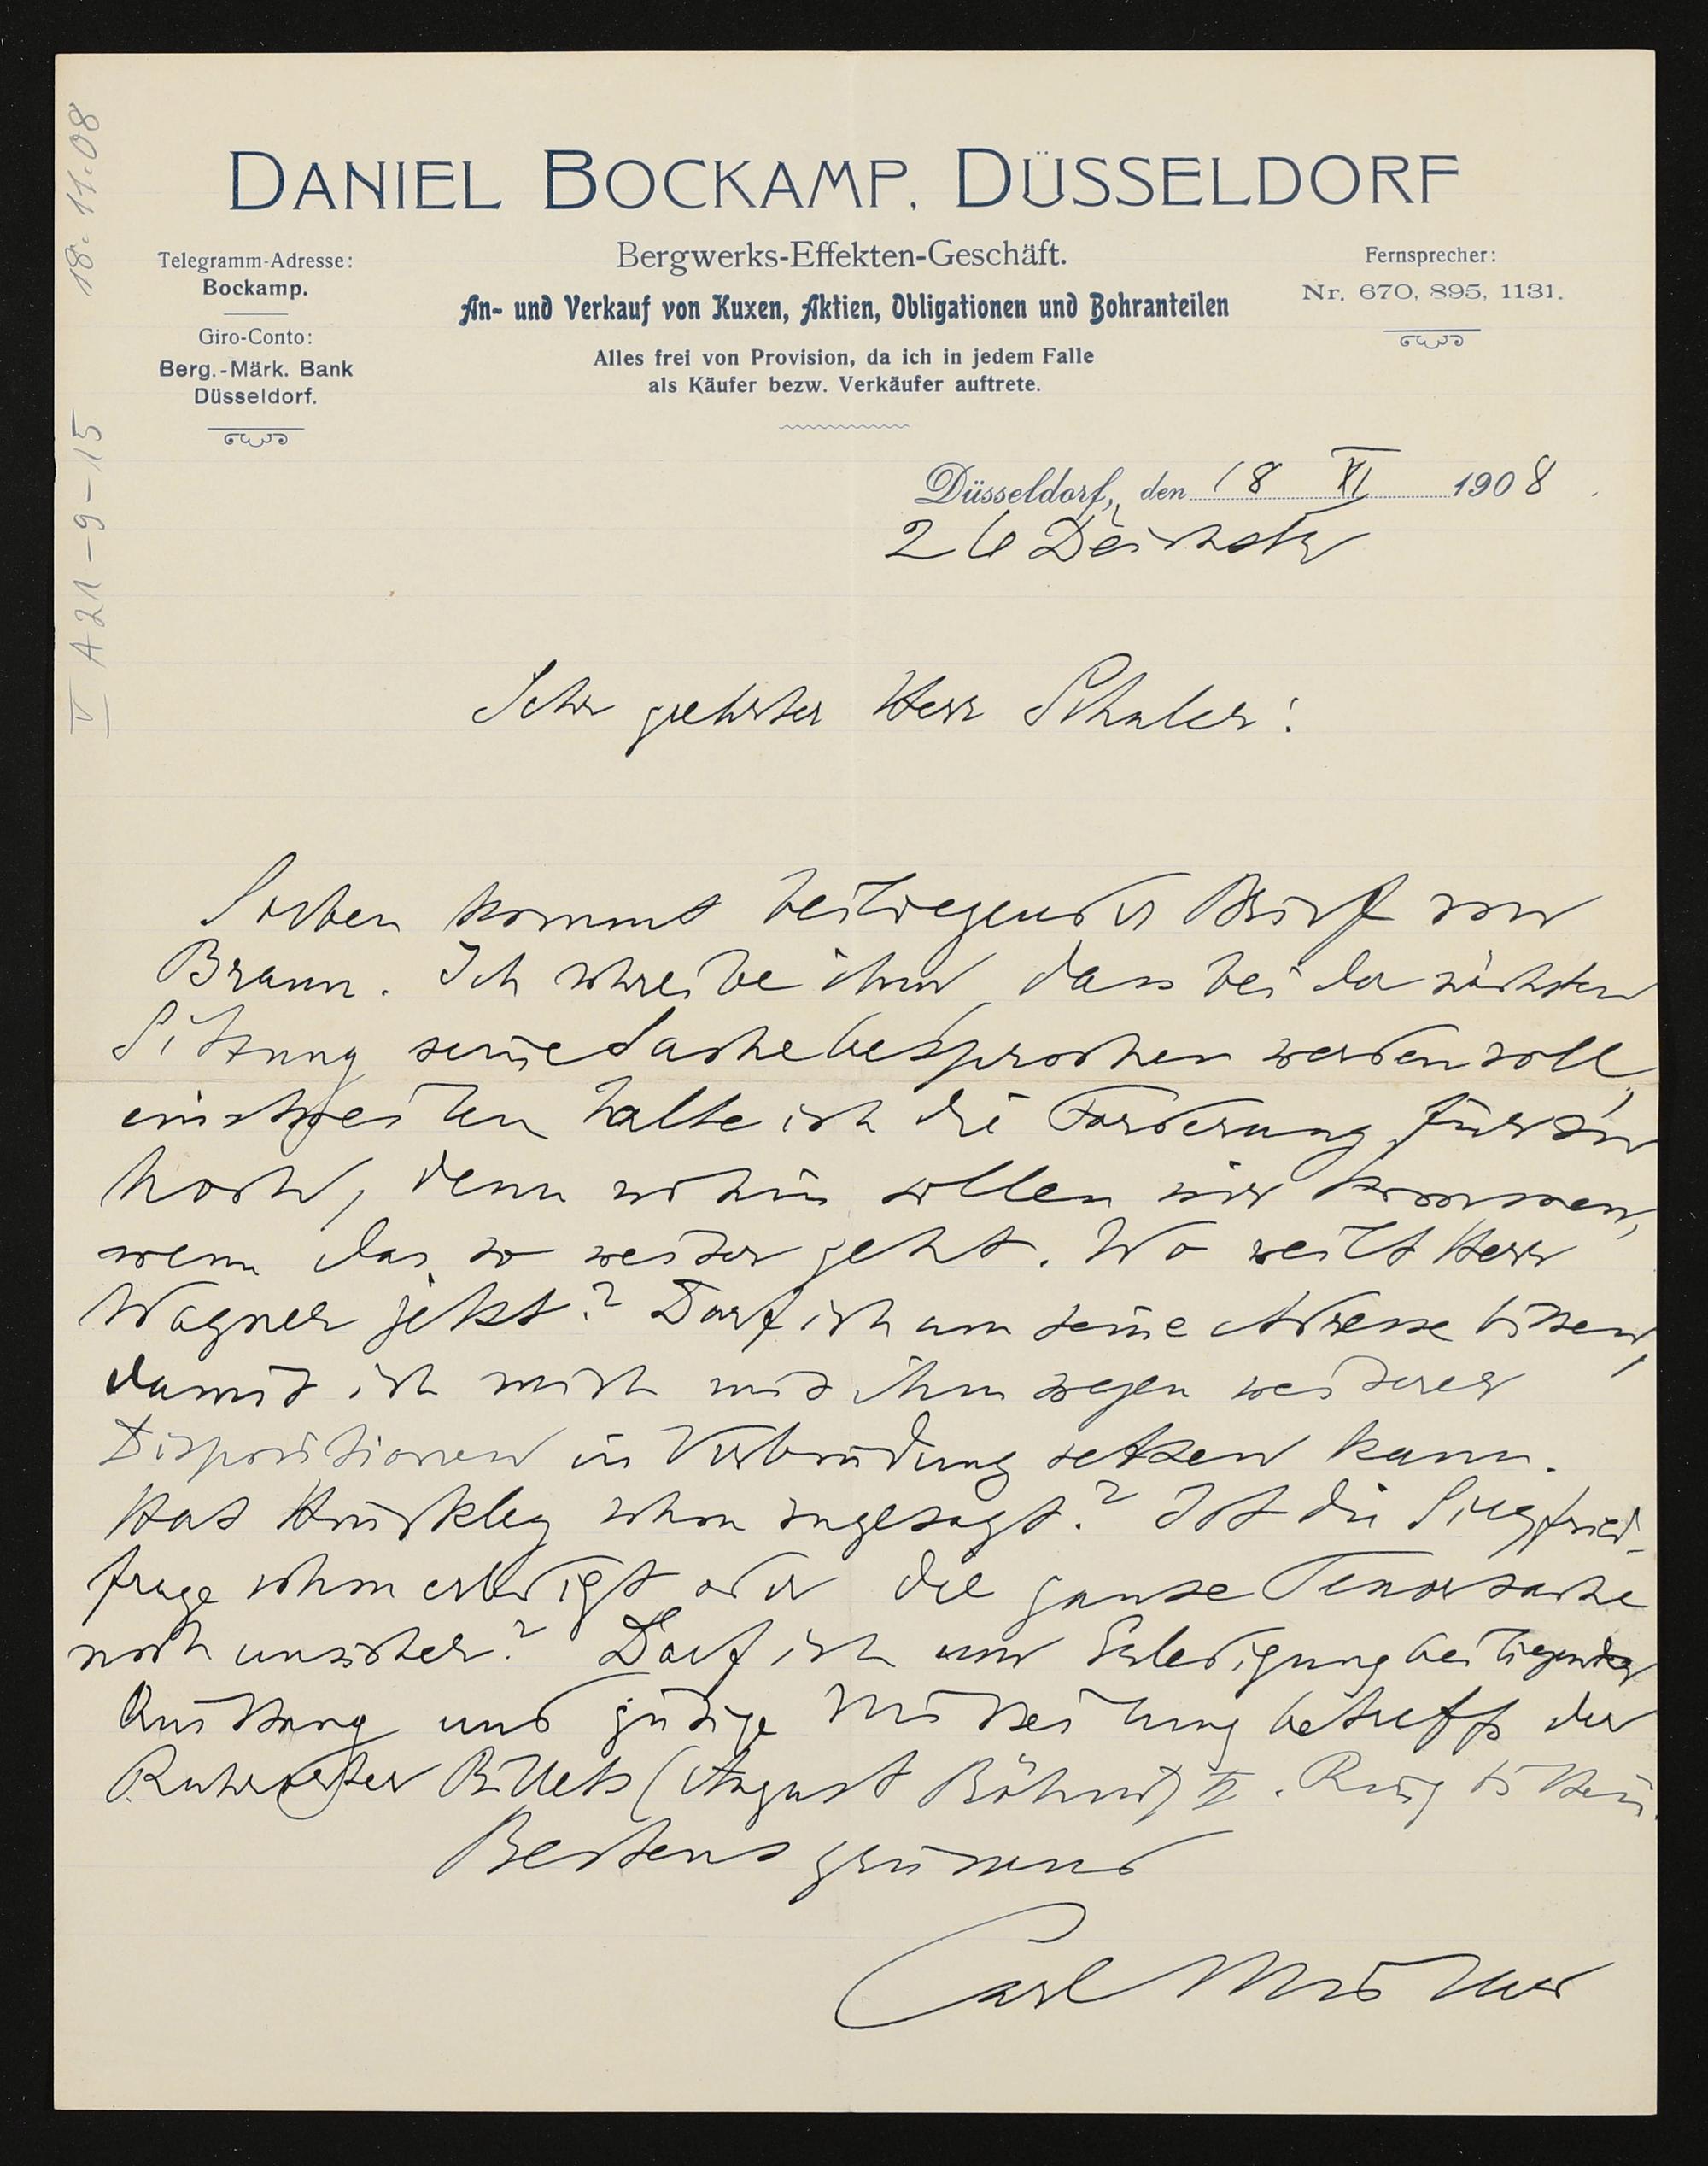 18. 11. 08
V A 21 - 9 - 15
DANIEL BOCKAMP, DÜSSELDORF
Telegramm-Adresse:
Bockamp.
Giro-Conto:
Berg.-Märk. Bank
Düsseldorf.
Bergwerks-Effekten-Geschäft.
An- und Verkauf von Kuxen, Aktien, Obligationen und Bohranteilen
Alles frei von Provision, da ich in jedem Falle
als Käufer bezw. Verkäufer auftrete.
Fernsprecher:
Nr. 670, 895, 1131.
Düsseldorf, den 18 XI 1908
26
Sehr geehrter Herr Schaler:
Soeben kommt beiliegender Brief von
Braun. Ich schreibe ihm, dass bei der nächsten
Sitzung seine Sache besprochen werden soll,
einstweilen halte ich die Forderung für zu
hoch, denn wohin sollen wir kommen,
wenn das so weiter geht. Wo weilt Herr
Wagner jetzt? Darf ich um seine Adresse bitten,
damit ich mich mit ihm wegen weiterer
Dispositionen in Verbindung setzen kann.
Hat schon zugesagt? Ist die Siegfried-
frage schon erledigt oder die ganze Tenorsache
noch unsicher? Darf ich um Erledigung beiliegender
Quittung und gütige Mitteilung betreffs der
Ruhrorter Billets (August Böhmer) II. Rang bitten.
Bestens grüssend
Carl